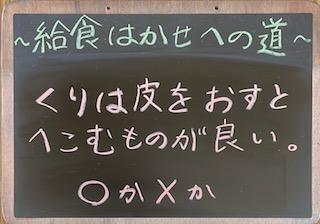 ～給食はかせへの道～
くりは皮をおすと
へこむものが良い。
○か×か